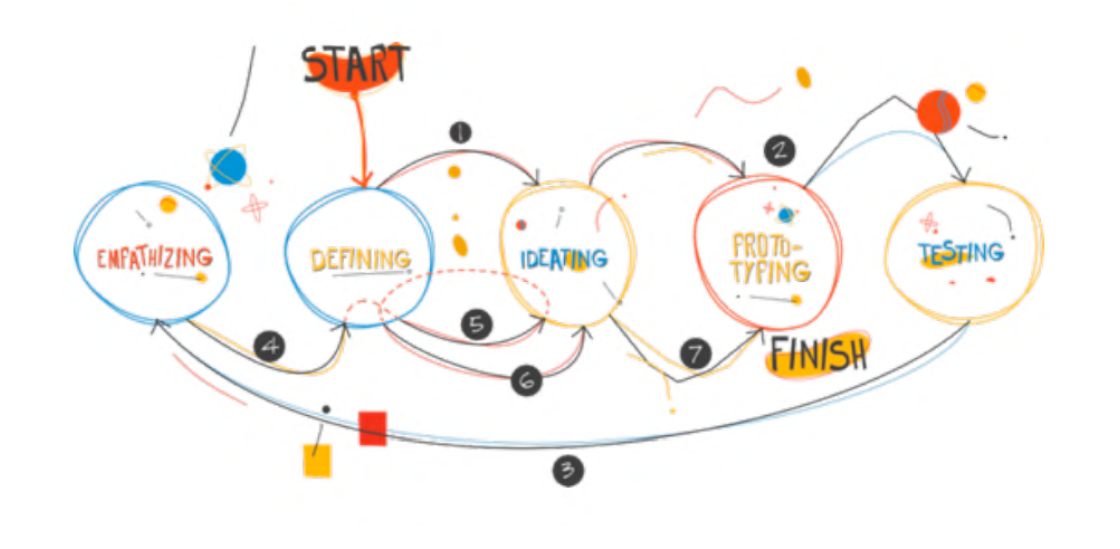 START
1
2
EMPATHIZING
DEFINING
IDEATING
PROTO-
TYPING
TESTING
4
5
6
7
FINISH
3